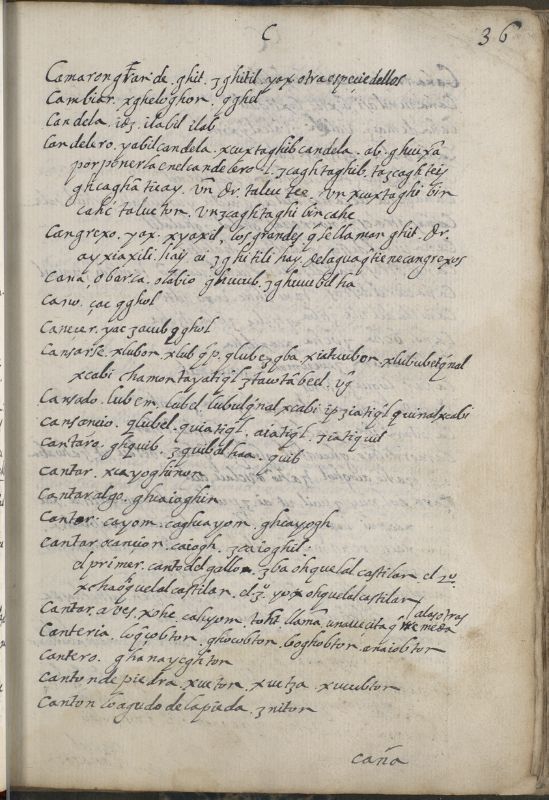 C
36
Camaron grande. ghit. ʒghitil. yox otra especie dellos
Cambiar. xghel oghon. qghel
Candela. itz. ilabil ilab
Candelero. yabil candela. xcuxtaghib candela. ab. ghuixa
por ponerla en el candelero. ʒcaghtaghib. taʒcaghteiy
ghcagha tieay. vn
cahć talue ton. vnʒcaghtaghi bin cahe
Cangrexo. yox. xyaxil, los grandes q̃ se llaman ghit. dr.
ay xiaxili. hay ai ʒghitili hay. el agua q̃ tiene cangrexos
Cana, o barba. olabio ghucub. ʒghuuebil ha
Cano. çac qghol
Caneçer. yac zacub qghol
Cansarse. xlubon xlub q̃p. qlubeʒ qba xiatuubor. xlububel q̃nal
xcabi chamon tayatiq̃l
Cansado. lubem. lubel. lubul q̃nal xcabi ip ʒiatiq̃l quinal xcabi
cansançio. qlubel. quiatiq̃l. aiatiq̃l. ʒiatiquil
Cantaro. ghquib. ʒquibil haa. quib
Cantar. xcayoghinon
Cantar algo. ghuaioghin
Cantor. cayom. caghuayom. ghuayogh
Cantar o cançion. caiogh. ʒcaioghil.
el primer canto del gallo. ʒba ohquelal castilan. el 2º.
xchaohquelal castilan. el 3º. yox ohquelal castilan
Cantar aves. xohe. cahyom. toht llama una uecita q̃ remeda
a las otras
Canteria. loçobton. ghocobton. boghobton. anaiobton
Cantero. ghanayeghton
Canton de piedra. xueton. xuetza. xucubton
Canton lo agudo de la pieda. ʒniton
caña